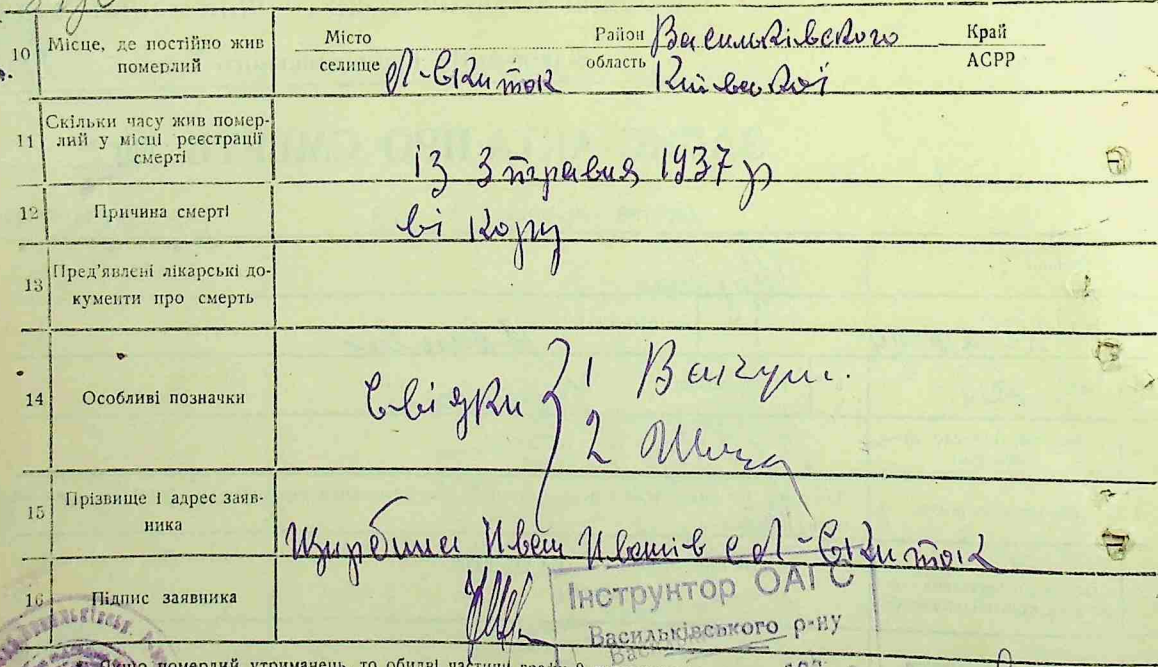 10 Місце, де постійно жив померлий
Місто
селище Л-Скиток
Район Васильківского
область Київскої
Край
АСРР
11 Скільки часу жив помер-
лий у місці реєстрації
смерті
Із 3 травня 1937 р
12 Причина смерті
ві кору
13 Пред'явлені лікарські до-
кументи про смерть
14 Особливі позначки
Свідки
1
2
15 Прізвище і адрес заяв-
ника
Иван Иванів с Л-Скиток
16 Підпис заявника
Інструктор ОАГС
Васильківського р-ну
Якщо померлий утриманець, то обидві